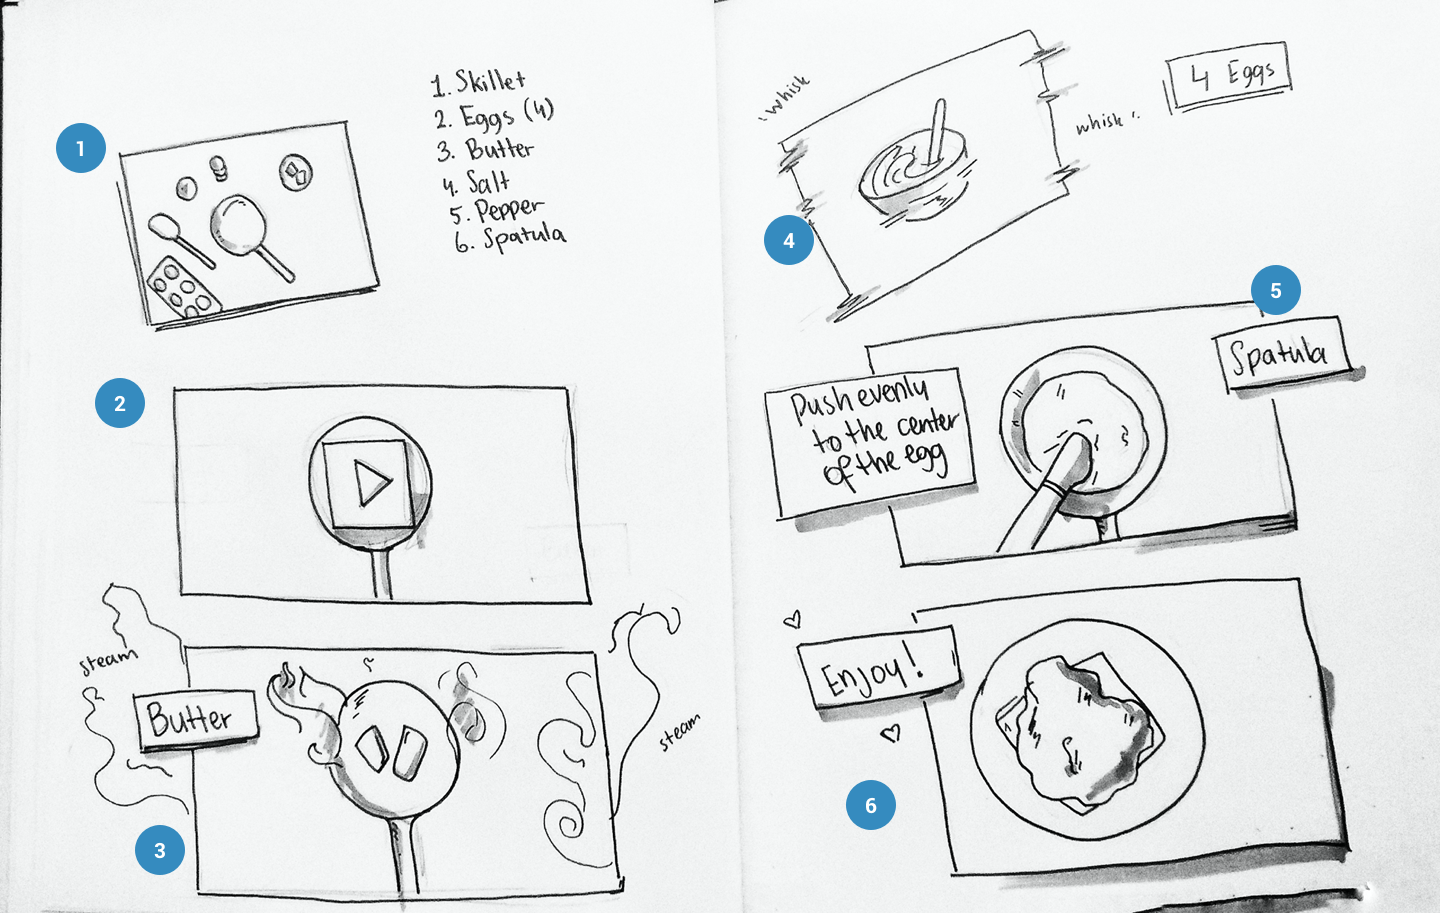 1
1. Skillet
2. Eggs (4)
3. Butter
4. Salt
5. Pepper
6. Spatula
2
steam
Butter
steam
3
whisk
whisk
4 Eggs
4
5
Spatula
Push evenly
to the center
of the egg
Enjoy!
6